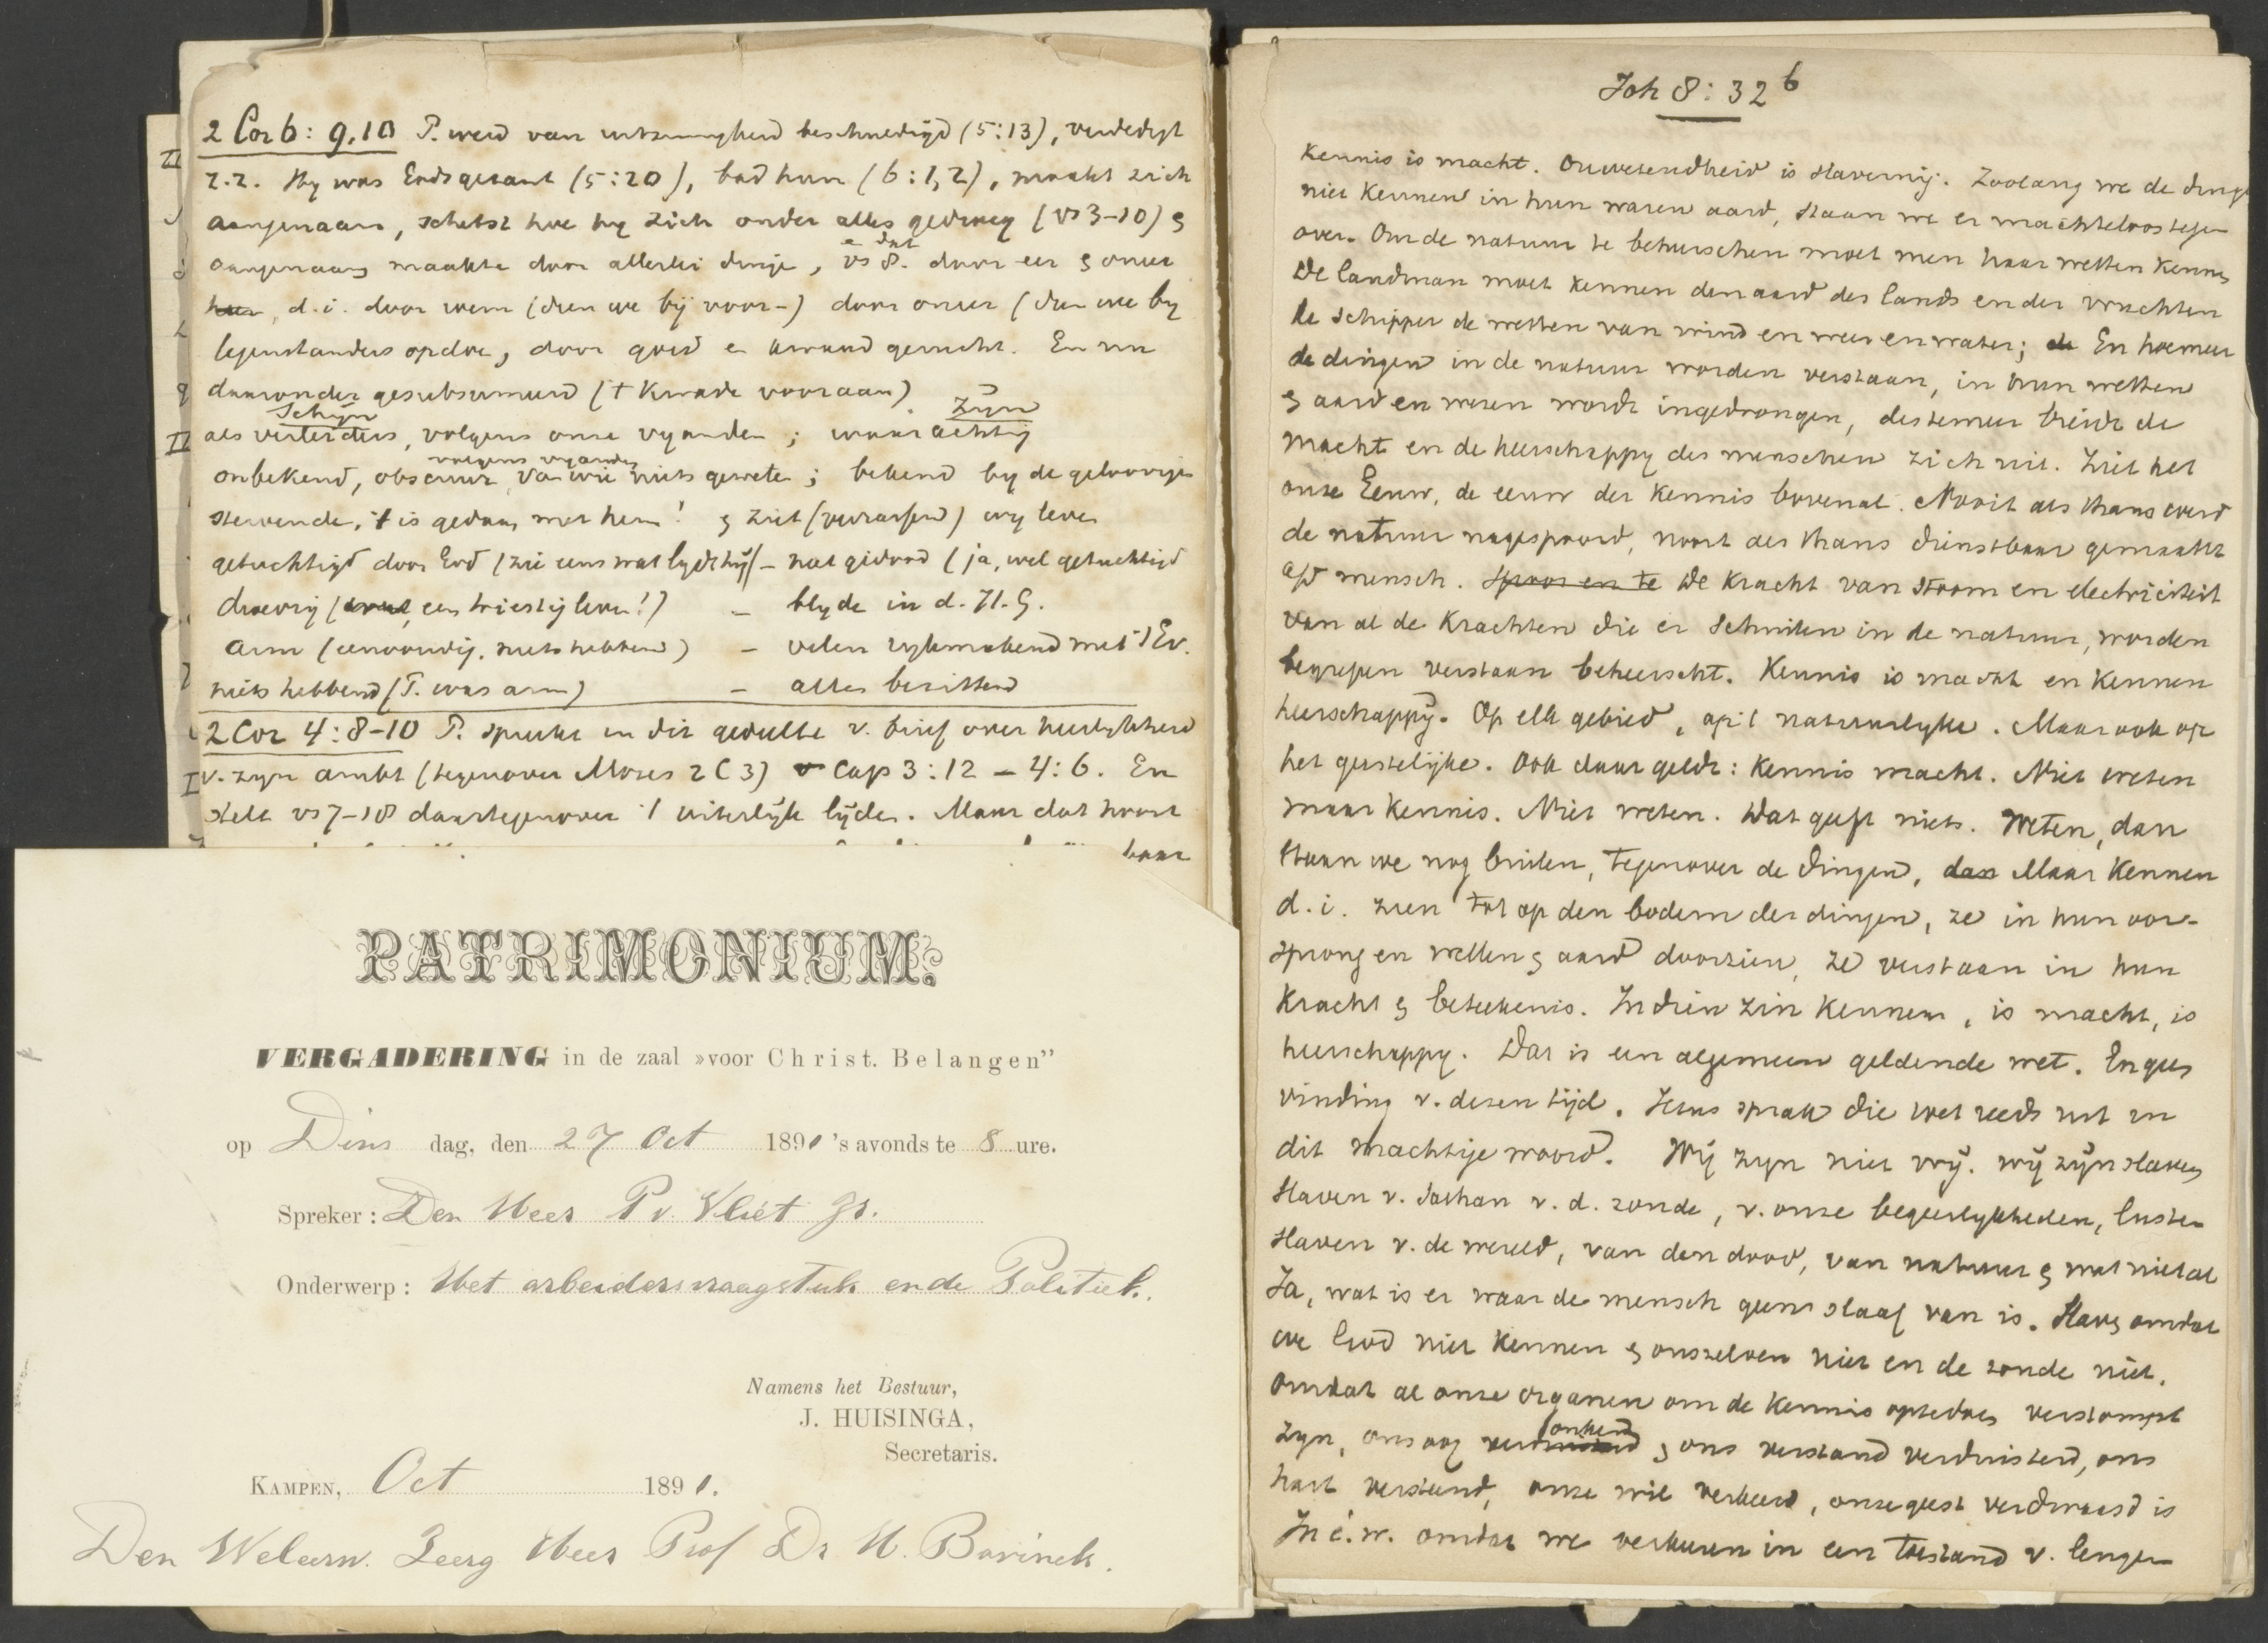 2 Cor 6: 9.10 P. werd van uitzinnigheid beschuldigd (5:13), verdedigt
z.z. Hy was Godsgezant (5:20), bad hun (6:1,2), maakt zich
aangenaam, schetst hoe hy zich onder alles gedroeg (vs 3-10) &
aangenaam maakte door allerlei dinge, vs 8. door eer & oneer
d.i. door eeren (dien we bij voor-) door oneer (dien we by
tegenstanders opdoe, door goed en kwaad gerucht. En nu
daaronder gesubsumeerd (t kwade vooraan)
Schijn Zijn
als verleiders, volgens onze vyanden; waarachtig
volgens vyanden
onbekend, obscuur, van wie niets gewete; bekend by de geloovige
stervende, 't is gedaan met hem! & ziet (verrassend) wy leven
getuchtigd door God (zie eens wat lydt hij) - niet gedood (ja, wel getuchtigd
droevig ( een triestig leven!) - blyde in d. H. G.
arm (eenvoudig, niets hebbend) - velen rykmakend met 't Ev.
niets hebbend (P. was arm) - alles bezittend
2 Cor 4: 8-10 P. spreekt in dit gedeelte v. brief over heerlykheid
v. zyn ambt (tegenover Mozes 2 C 3) Cap 3:12 - 4:6. En
stelt vs 7-18 daartegenover 't uiterlyk lyden. Maar dat hoort
haar
PATRIMONIUM.
VERGADERING in de zaal »voor Christ. Belangen”
op Dins dag, den 27 Oct 1891 's avonds te 8 ure.
Spreker: Den Heer P v. Vliet Jr.
Onderwerp: Het arbeidersvraagstuk en de Politiek.
Namens het Bestuur,
J. HUISINGA,
Secretaris.
KAMPEN, Oct 1891.
Den Weleerw. Zeerg Heer Prof Dr H. Bavinck.
Joh 8: 32 b
Kennis is macht. Onwetendheid is slavernij. Zoolang we de dinge
niet kennen in hun waren aard, staan we er machteloos tegen
over. Om de natuur te beheerschen moet men haar wetten kennen
De landman moet kennen den aard des lands en der vruchten
de schipper de wetten van wind en weer en water; de En hoe meer
de dingen in de natuur worden verstaan, in hun wetten
& aard en wezen wordt ingedrongen, des te meer breidt de
macht en de heerschappy des menschen zich uit. Ziet het
onze Eeuw, de eeuw der kennis bovenal. Nooit als thans werd
de natuur nagespoord, nooit als thans dienstbaar gemaakt
a/d mensch. Spoor en te De kracht van stoom en electriciteit
van al de krachten die er schuilen in de natuur, worden
begrepen verstaan beheerscht. Kennis is macht en kennen
heerschappij. Op elk gebied, op 't natuurlyke. Maar ook op
het geestelijke. Ook daar geldt: kennis macht. Niet weten
maar kennis. Niet weten. Dat geeft niets. Weten, dan
staan we nog buiten, tegenover de dingen, dan Maar kennen
d.i. zien tot op den bodem der dingen, ze in hun oor-
sprong en wetten & aard doorzien, ze verstaan in hun
kracht & beteekenis. In dien zin kennen, is macht, is
heerschappy. Dat is een algemeen geldende wet. En geen
vinding v. dezen tijd. Jezus sprak die wet reeds uit in
dit machtige woord. Wij zyn niet vrij. wij zijn slaven
slaven v. Sathan v. d. zonde, v. onze begeerlykheden, lusten
slaven v. de wereld, van den dood, van natuur & wat niet al
Ja, wat is er waar de mensch geen slaaf van is. Slaaf omdat
we God niet kennen & onszelven niet en de zonde niet.
Omdat al onze organen om de kennis optedoen verstompt
zyn, ons oog verdonkerd & ons verstand verduisterd, ons
hart versteend, onze wil verkeerd, onze geest verdwaasd is
In é.w. omdat we verkeeren in een toestand v. leugen